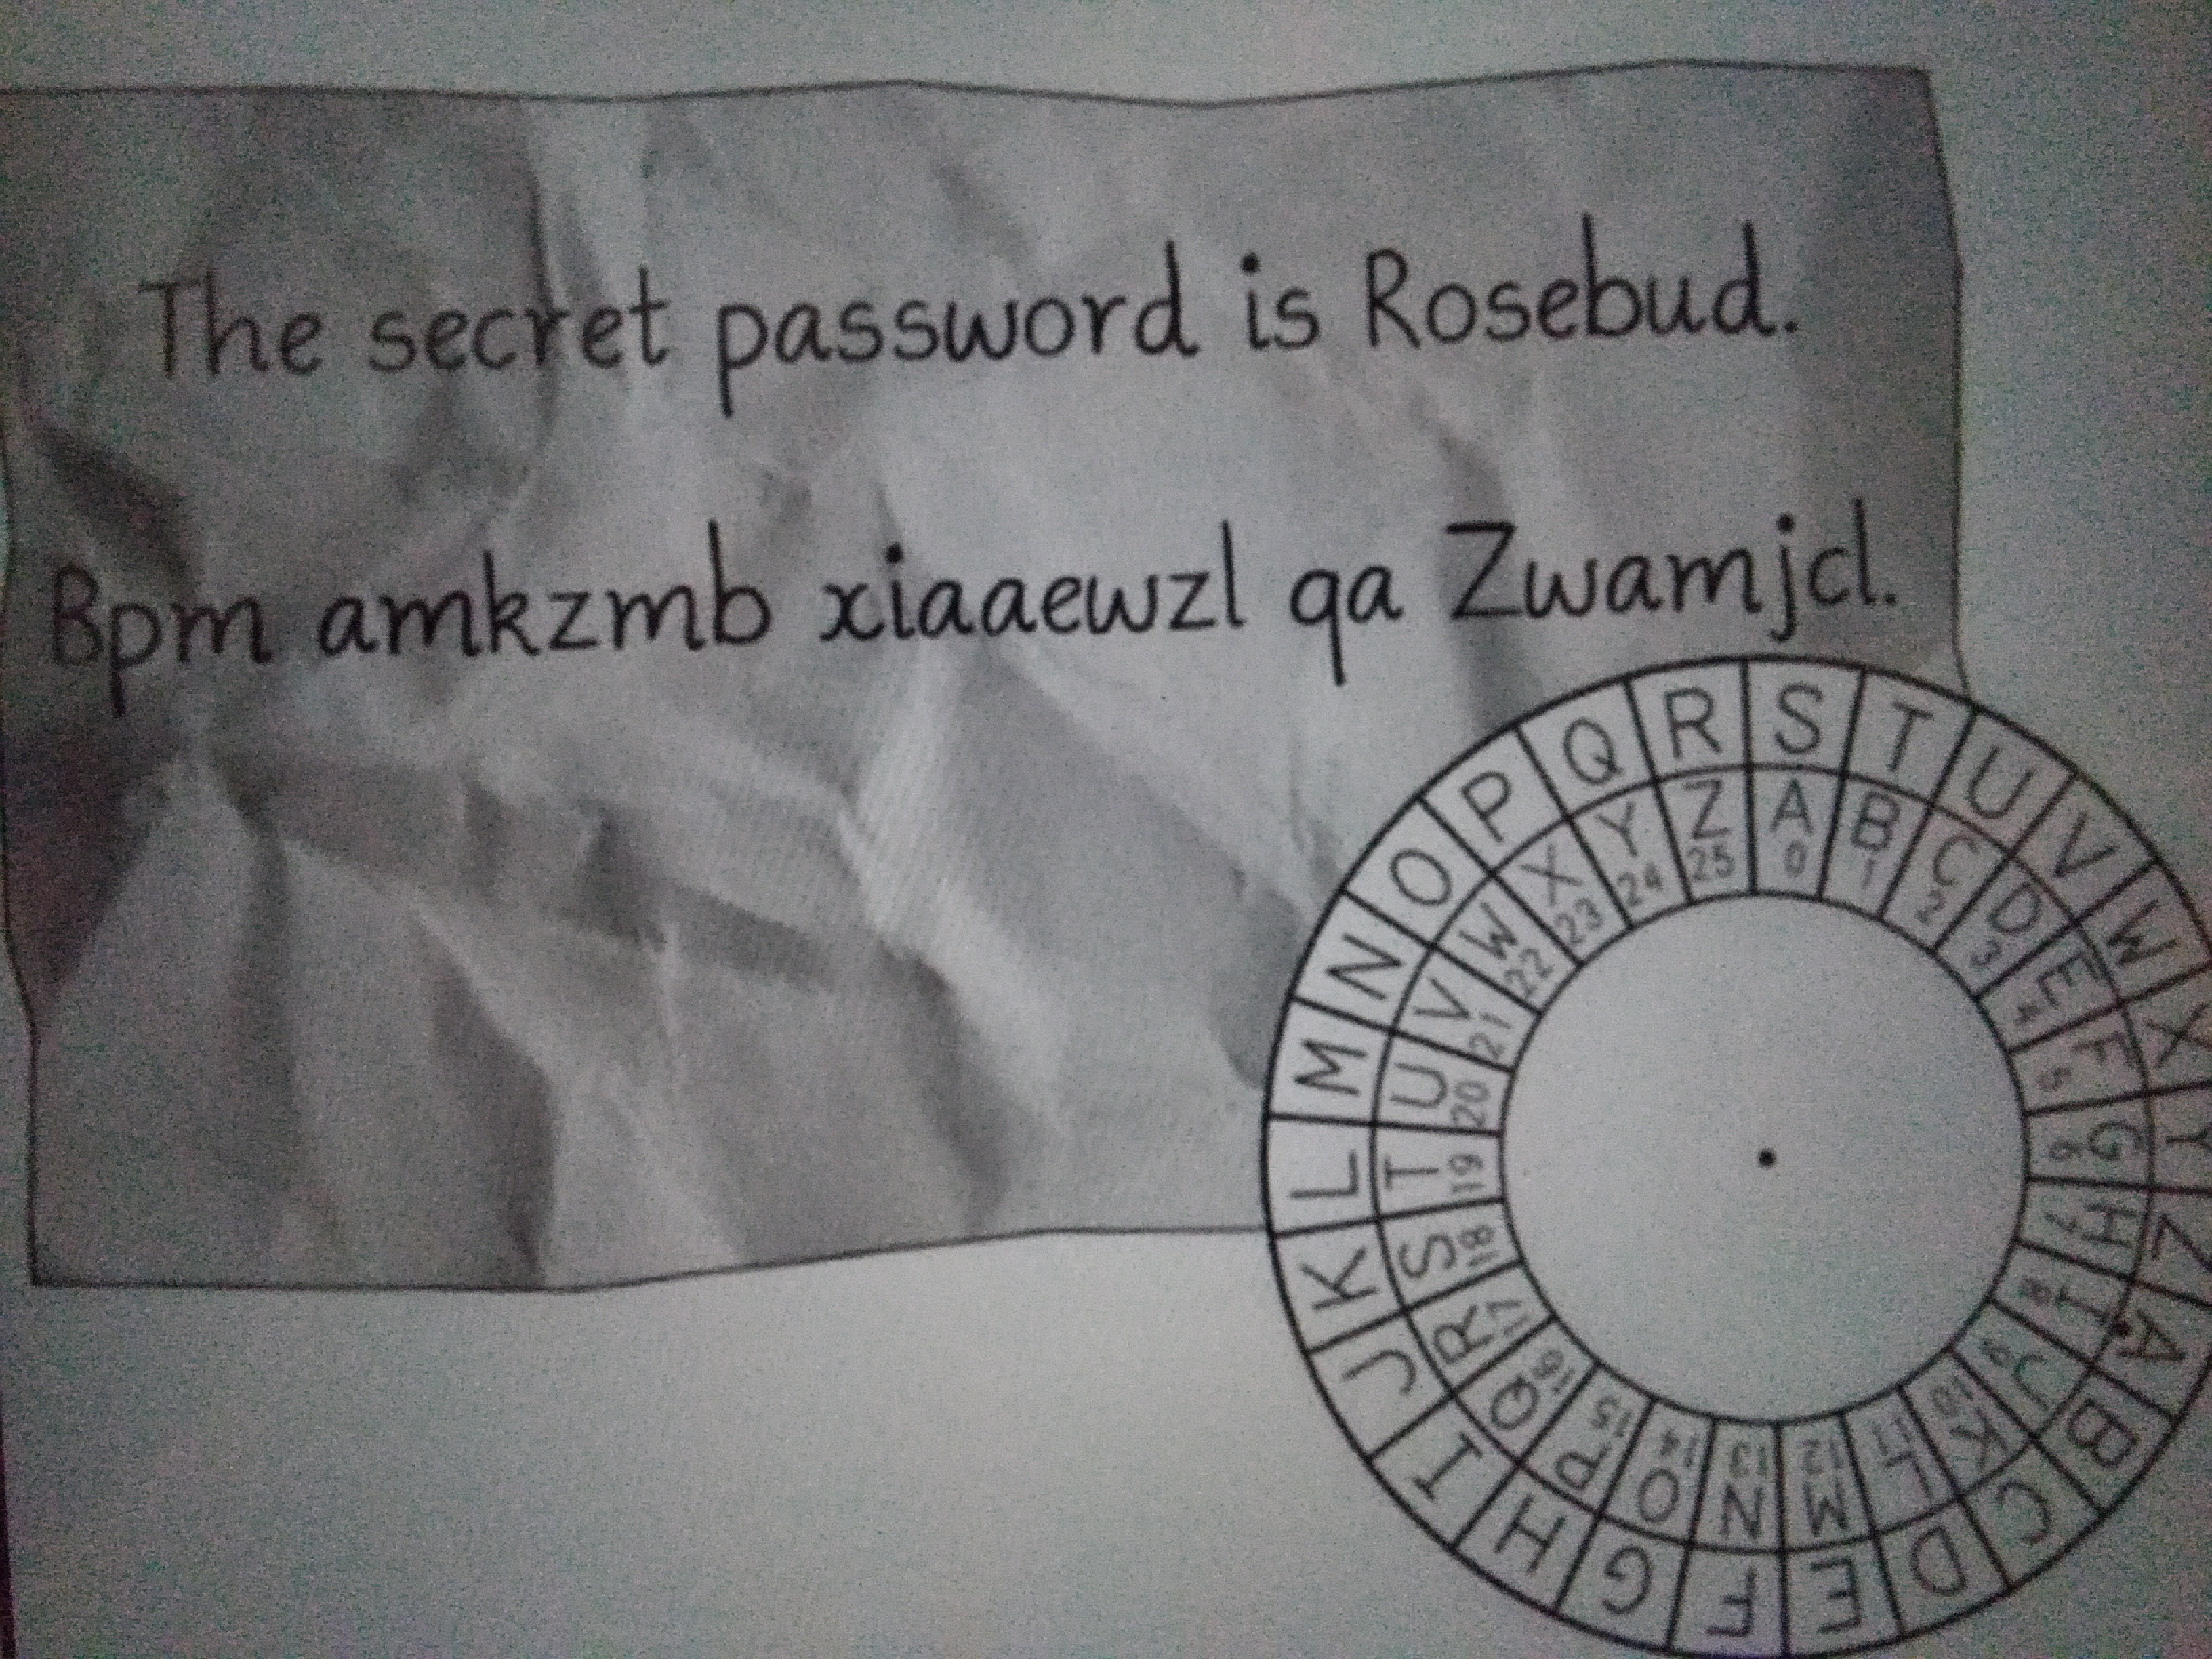 The secret password is Rosebud.
Bpm amkzmb xiaaewzl qa Zwamjcl.
S T U V W X Y Z A B C D E F G H I J K L M N O P Q R
A B C D E F G H I J K L M N O P Q R S T U V W X Y Z
0 1 2 3 4 5 6 7 8 9 10 11 12 13 14 15 16 17 18 19 20 21 22 23 24 25